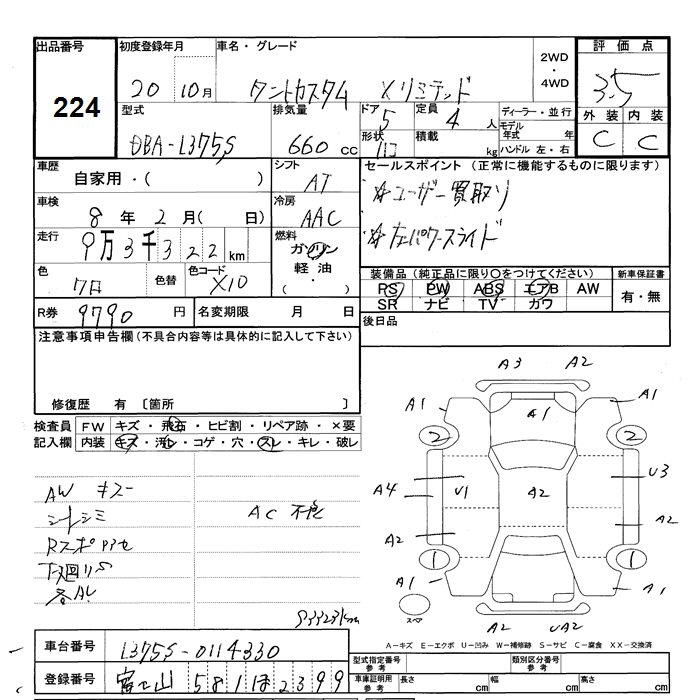 出品番号 初度登録年月 車名・グレード 2WD・4WD 評価点
224 20 10月 タントカスタム Xリミテッド 3.5
型式 排気量 ドア 定員 ディーラー・並行 外装 内装
DBA-L375S 660cc 5 4人 モデル年式 年 C C
形状 積載 kg ハンドル 左・右
車歴 自家用・( ) シフト AT セールスポイント (正常に機能するものに限ります)
車検 8年2月( 日) 冷房 AAC ☆ユーザー買取り
走行 9万3千322km 燃料 ガソリン 軽油・( ) ☆左パワースライド
色 色替 色コード X10 装備品 (純正品に限り○をつけてください) 新車保証書
PS PW ABS エアB AW 有・無
SR ナビ TV カワ
R券 9790円 名変期限 月 日 後日品
注意事項申告欄(不具合内容等は具体的に記入して下さい)
修復歴 有 〔箇所 〕
検査員記入欄 FW キズ・飛石・ヒビ割・リペア跡・×要
内装 キズ・汚レ・コゲ・穴・スレ・キレ・破レ
AW キズ
シートシミ AC 不良
各A1
A3 A2
A1 A1 A1
2 2
A4 U1 A2 U3
A2 A2
1 1
A1 A1
スペア A2 UA2
A-キズ E-エクボ U-凹み W-補修跡 S-サビ C-腐食 XX-交換済
車台番号 L375S-0114330
型式指定番号 参考 類別区分番号 参考
登録番号 富士山 581 ほ 2399
車庫証明用 参考 長さ cm 幅 cm 高さ cm